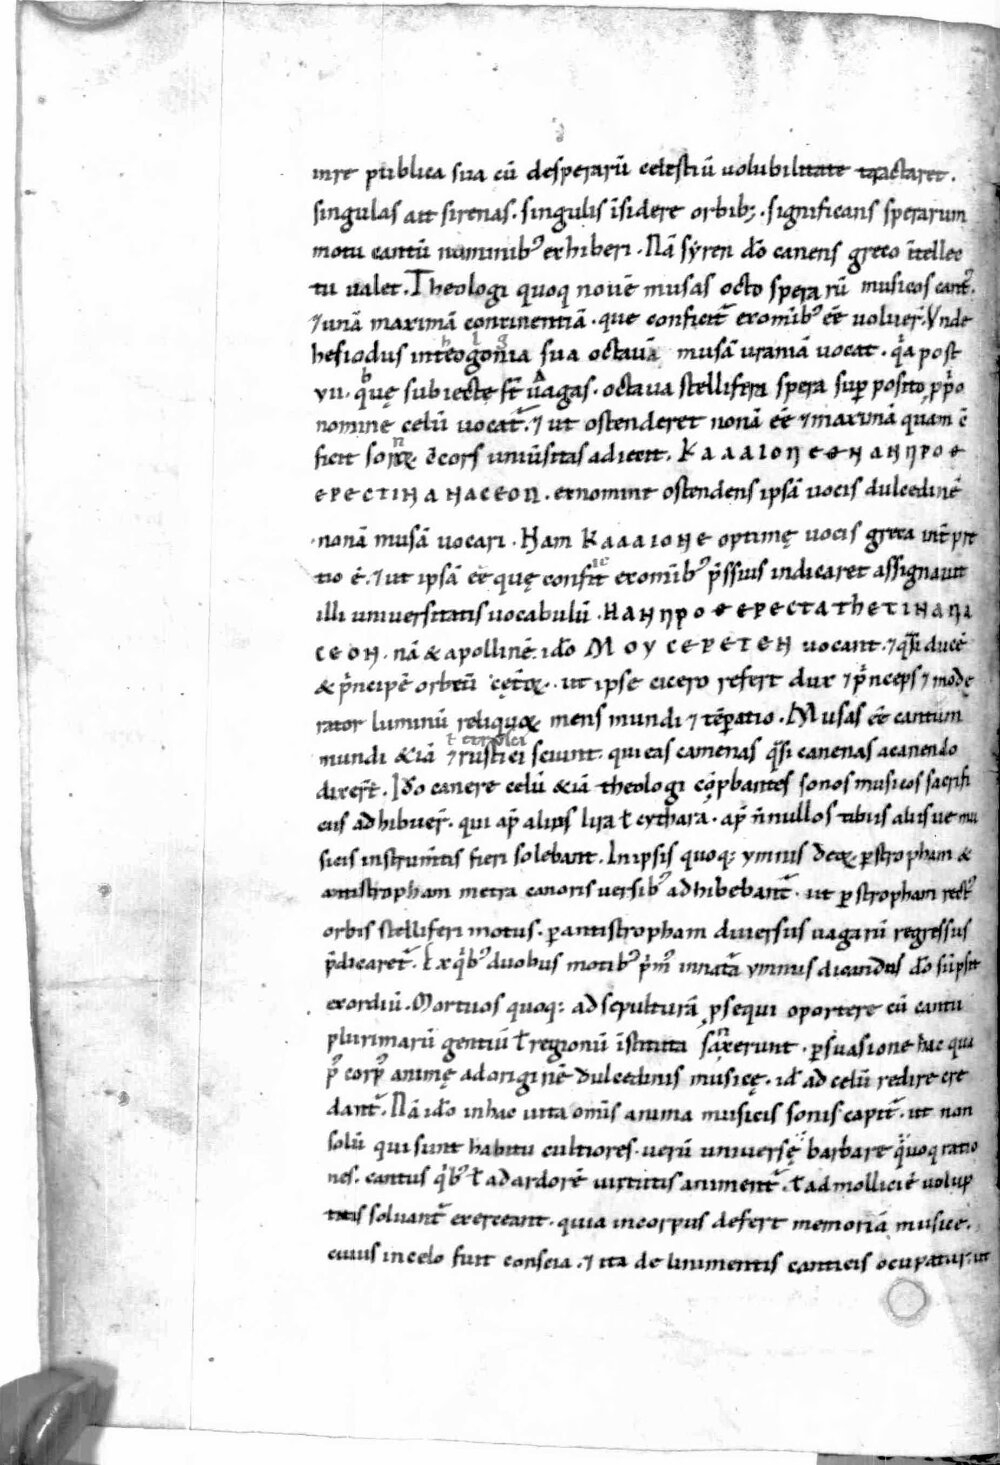 inre publica sua cū desperarū celestiū uolubilitate tractaret.
singulas ait sirenas. singulis īsidere orbib;. significans sperarum
motu cantū numinibꝰ exhiberi. Nā sẏren dō canens greco ītellec
tu ualet. Theologi quoq nouē musas octo spera rū musicos cantꝰ.
⁊ unā maximā continentiā. que conficit᷑ exomībꝰ eē uoluer̄. Vnde
hesiodus inteogonia sua octauā musā uraniā uocat. qͣa post
vii. qͣuę subiectę st̄ uagas. octaua stellifera spera suꝑ posito, ꝓpͥo
nomine celū uocat᷑. ⁊ ut ostenderet nonā eē ⁊ maximā quam ē
ficit sonoꝝ. ē cors uniūsitas adiecit. K a a a ı o η ϵ ϵ н a н η p o ϵ
ϵ p ϵ c т ı н a н a c ϵ o n. exnomine ostendens ipsā uocis dulcedinē
nonā musā uocari. Ham K a a a ı o н ϵ optimę uocis greca int̄ pre
tio ē. ⁊ ut ipsā eē quę confit exomībꝰ p̄ssius indicaret assignauit
illi uniuersitatis uocabulū. н a н η p o ϵ ϵ p ϵ c т a т h ϵ т ı н a η ı
c ϵ o н. nā & apollinē. idō M o y c ϵ p ϵ т ϵ н uocant. ⁊ qͣsi ducē
& pͥncipē orbiū cęt̄oꝝ. ut ipse cicero refert dux ⁊ pͥnceps ⁊ modę
rator luminū reliquoꝝ mens mundi ⁊ tēꝑatio. Musas eē cantum
mundi &iā ⁊ rustici sciunt. qui eas camenas qͣsi canenas acanendo
dixer̄t. Idō canere celū &iā theologi cōꝓbantes sonos musicos sacrifi
ciis adhibuer̄. qui apͥ alios lira ł cythara. apͥ n̄nullos tibiis aliis ue mu
sicis instrum̄tis fieri solebant. Inipsis quoq; ymnis deoꝝ. ꝑstropham &
antistropham metra canoris uersibꝰ adhibebant᷑. ut ꝑ stropham rectꝰ
orbis stelliferi motus. ꝑantistropham diuersus uagarū regressus
p̄dicaret᷑. Exqͥbꝰ duobus motibꝰ pͥmꝰ innatā ymnus dicandus dō sūpsit
exordiū. Mortuos quoq; ad sepulturā ꝓsequi oportere cū cantu
plurimarū gentiū ł regionū īstituta sanxerunt. ꝑsuasione hac qui
pͥ corpꝰ animę adoriginē dulcedinis musicę. id ad celū redire cre
dant᷑. Nā idō inhac uita om̄s anima musicis sonis capit᷑. ut non
solū qui sunt habitu cultiores. uerū uniuersę barbare qͣuoq ratio
nes. cantus qͥbꝰ ł adardorē uirtutis animent᷑. ł admolliciē uolup
tatis soluant᷑ exerceant. quia incorpus defert memoriā musice.
cuius incelo fuit conscia. ⁊ ita de linimentis canticis ocupatur. ut